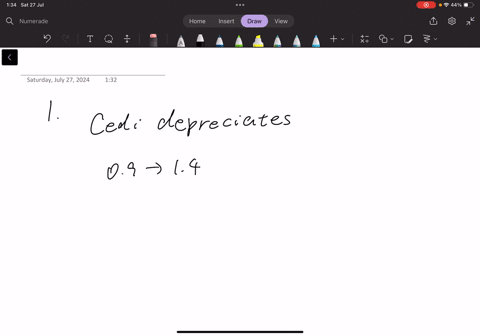 1:34 Sat 27 Jul
44%
Numerade
Home Insert Draw View
Saturday, July 27, 2024 1:32
1. Cedi depreciates
0.9 → 1.4